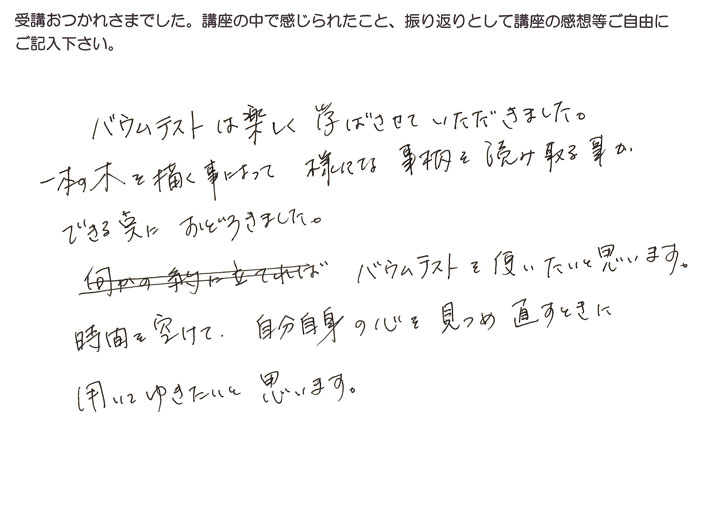 受講おつかれさまでした。講座の中で感じられたこと、振り返りとして講座の感想等ご自由に
ご記入下さい。
バウムテストは楽しく学ばさせていただきました。
一本の木を描く事によって様々な事柄を読み取る事が
できる点におどろきました。
バウムテストを使いたいと思います。
時間を空けて、自分自身の心を見つめ直すときに
用いてゆきたいと思います。